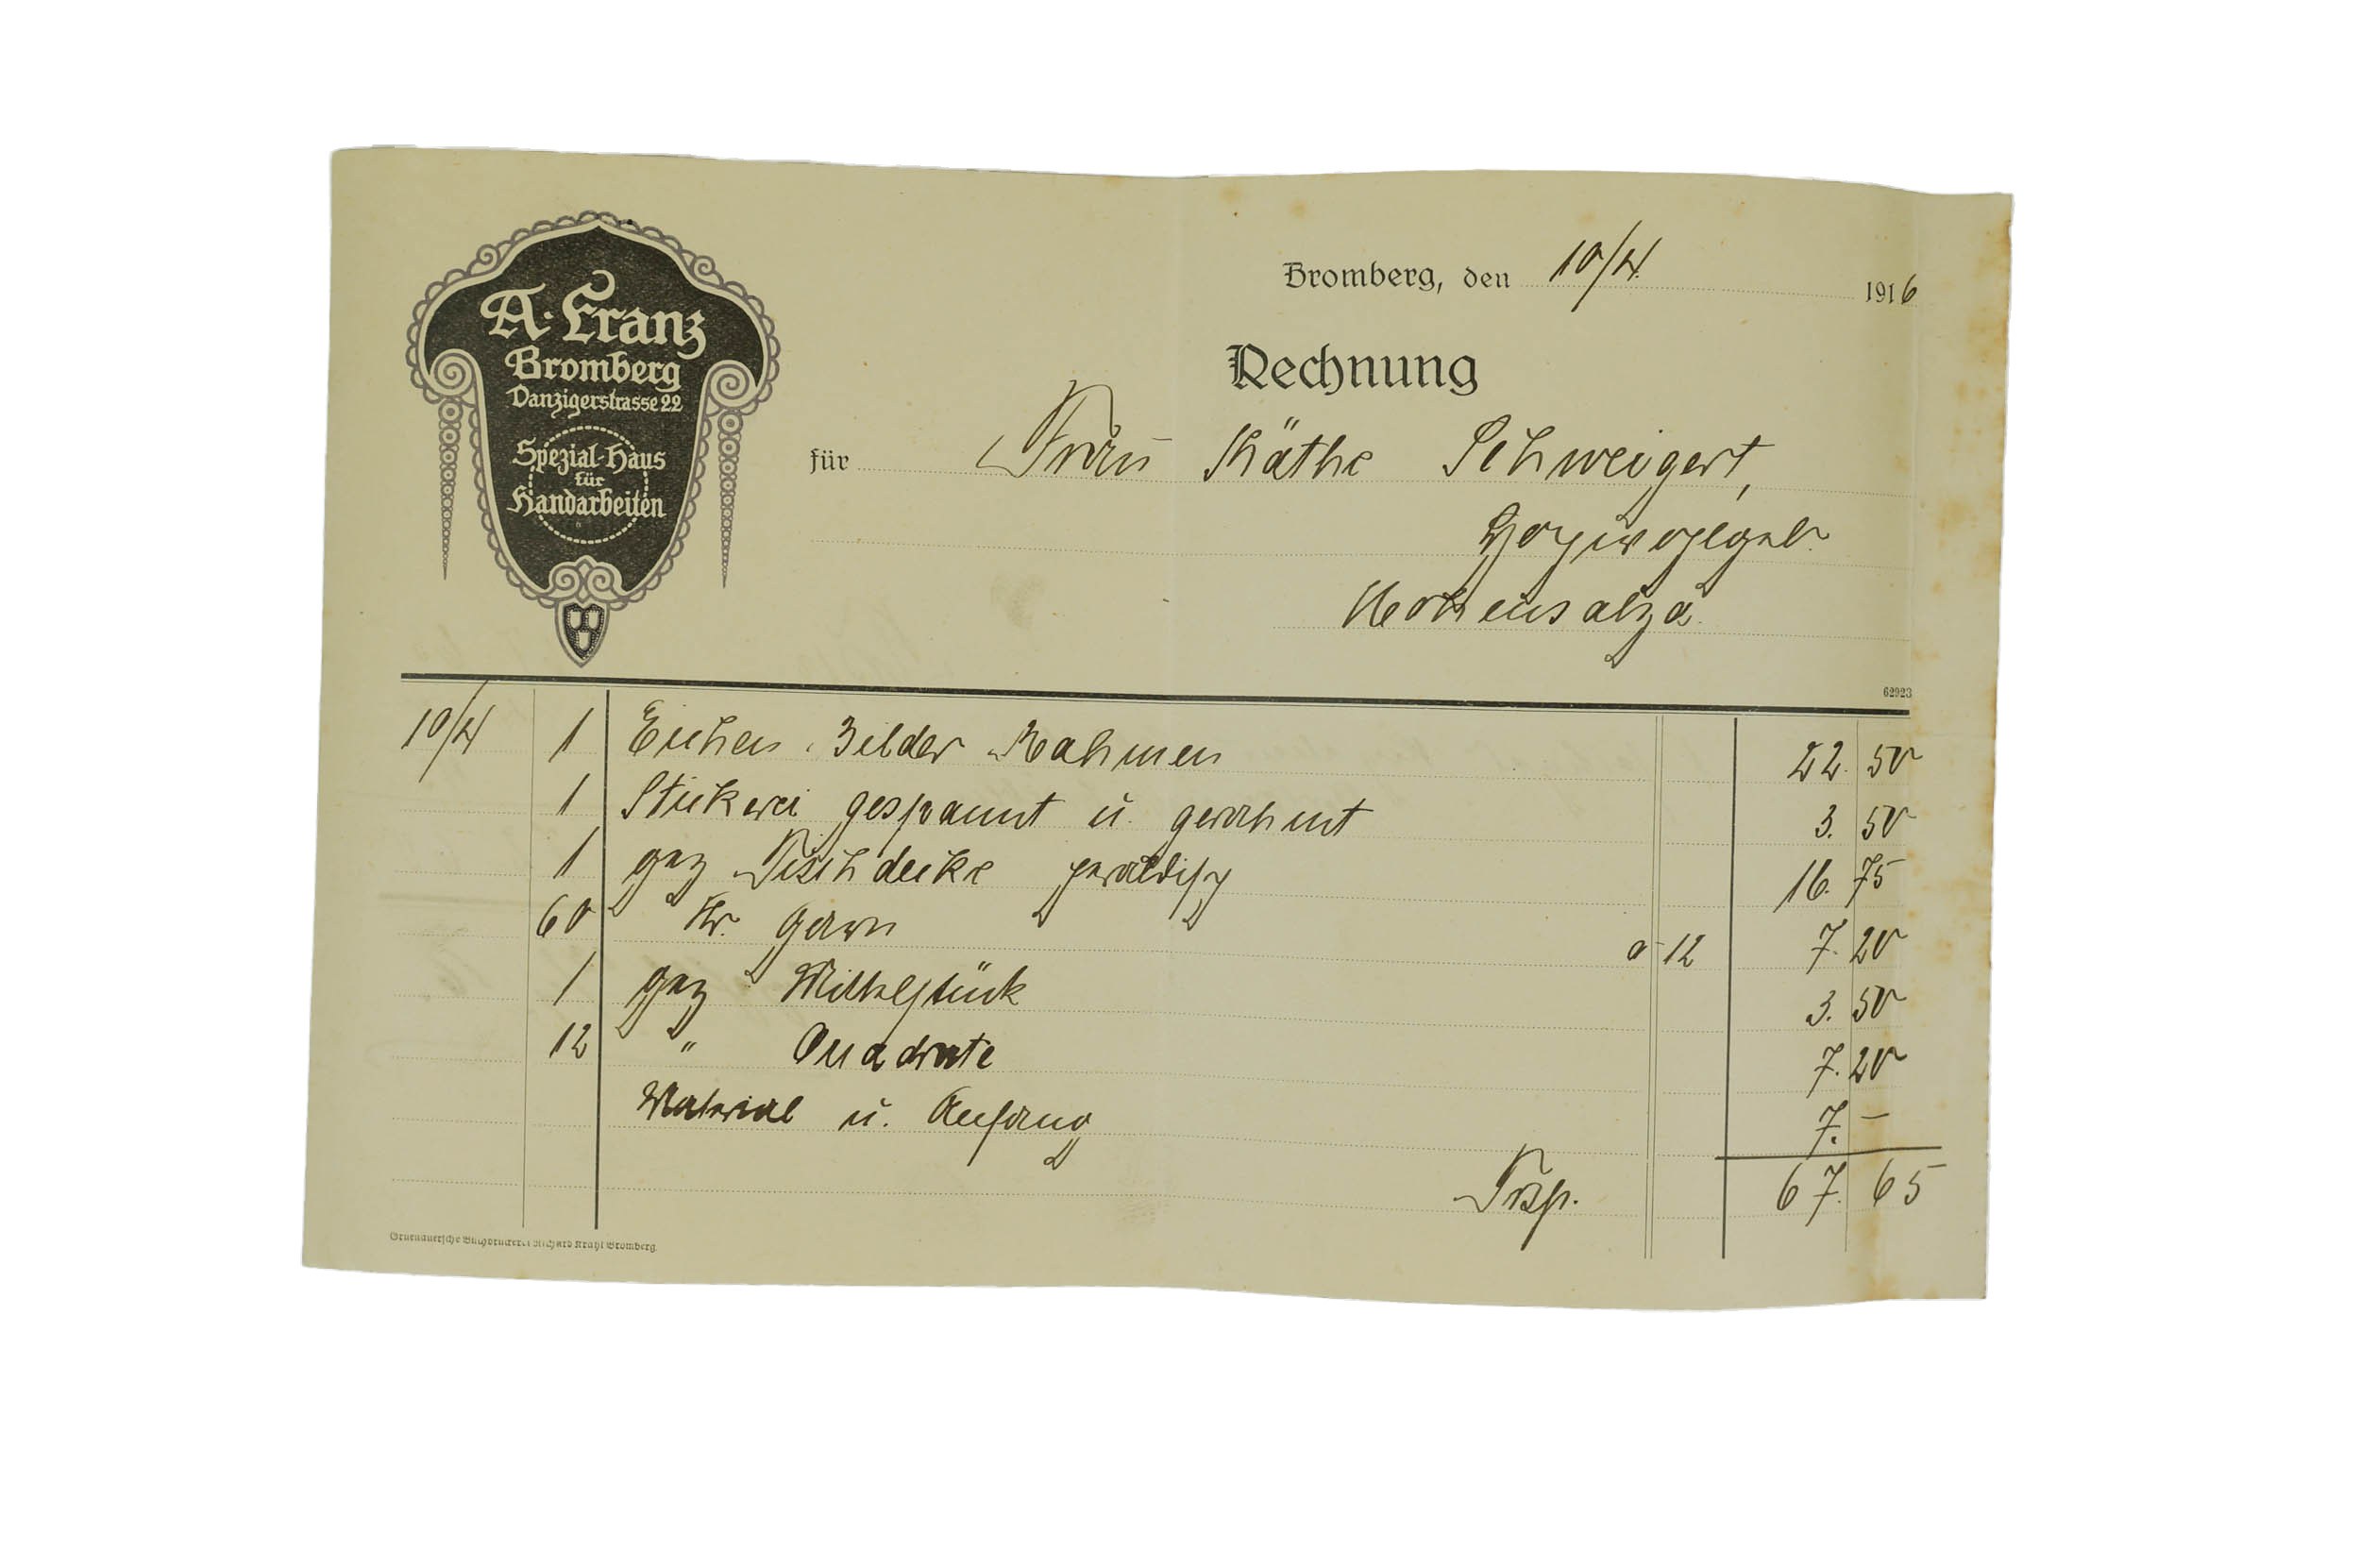 A. Franz
Bromberg
Danzigerstrasse 22
Spezial-Haus
für
Handarbeiten
Bromberg, den 10/4. 1916
Rechnung
für Frau Käthe Schweigert,
Hohensalza.
62923
10/4 1 Eichen Bilder Rahmen 22. 50
1 Stickerei gespannt u. gerahmt 3. 50
1 gez Tischdecke 16. 75
60 Kr. Garn a 12 7. 20
1 gez Mittelstück 3. 50
12 " Quadrate 7. 20
Material u. Anfang 7. –
Trsp. 67. 65
Gruenauersche Buchdruckerei Richard Krahl Bromberg.